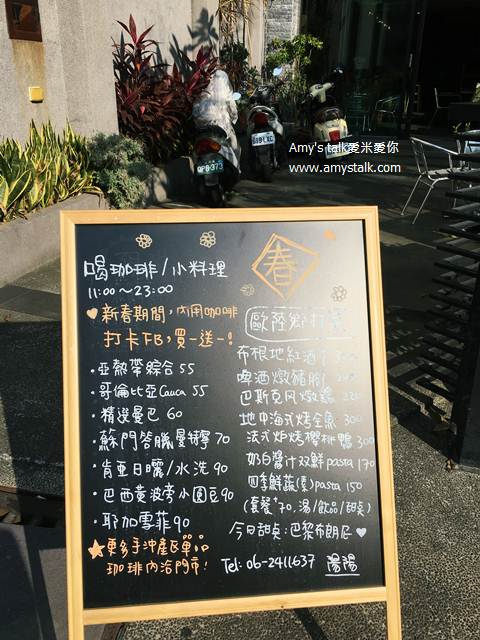 Amy's talk愛米愛你
www.amystalk.com
春
喝咖啡/小料理
11:00~23:00
♥新春期間,內用咖啡
打卡FB,買一送一!
·亞熱帶綜合 55
·哥倫比亞Cauca 55
·精選曼巴 60
·蘇門答臘曼特寧 70
·肯亞日曬/水洗 90
·巴西黃波旁小圓豆 90
·耶加雪菲 90
★更多手沖產區單品
咖啡內洽門市!
歐陸鄉村
布根地紅酒
啤酒燉豬腳
巴斯克風燉雞
地中海式烤全魚 300
法式炉烤櫻桃鴨 300
奶白醬汁双鮮pasta 170
四季鮮蔬(素)pasta 150
(套餐+70,湯/飲品/甜点)
今日甜点:巴黎布朗尼♥
Tel:06-2411637 陽陽